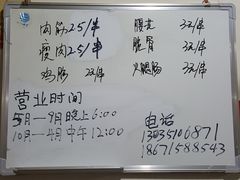 肉筋2.5/串
腰花 3元/串
瘦肉2.5/串
脆骨 3元/串
鸡肠 2元/串
火腿肠 3元/串
营业时间
5月-9月晚上6:00
10月-4月中午12:00
电话
18671588543